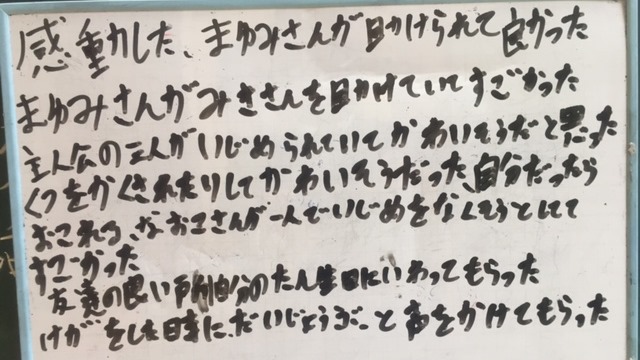 感動した、まゆみさんが助けられて良かった
まゆみさんがみきさんを助けていてすごかった
主人公の二人がいじめられていてかわいそうだと思った
くつをかくされたりしてかわいそうだった、自分だったら
おこれる、なおこさんが一人でいじめをなくそうとしてて
すごかった
友達の良い所 自分のたん生日にいわってもらった
けがをした時に、だいじょうぶ、と声をかけてもらった